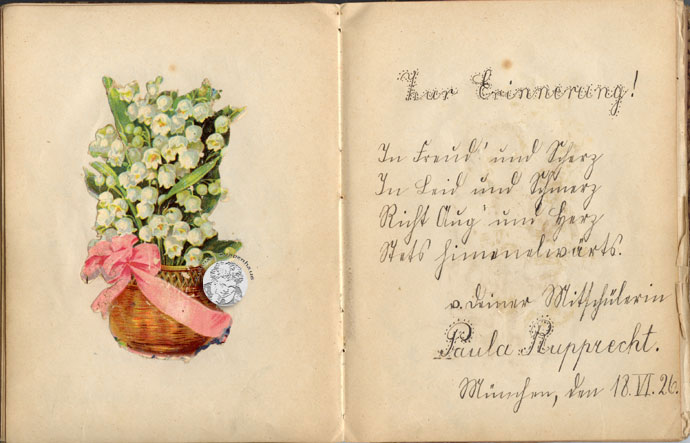 Zur Erinnerung!
In Freud' und Scherz
In Leid und Schmerz
Richt Aug' und Herz
Stets himmelwärts.
v. deiner Mitschülerin
Paula Rupprecht.
München, den 18.VI.26.